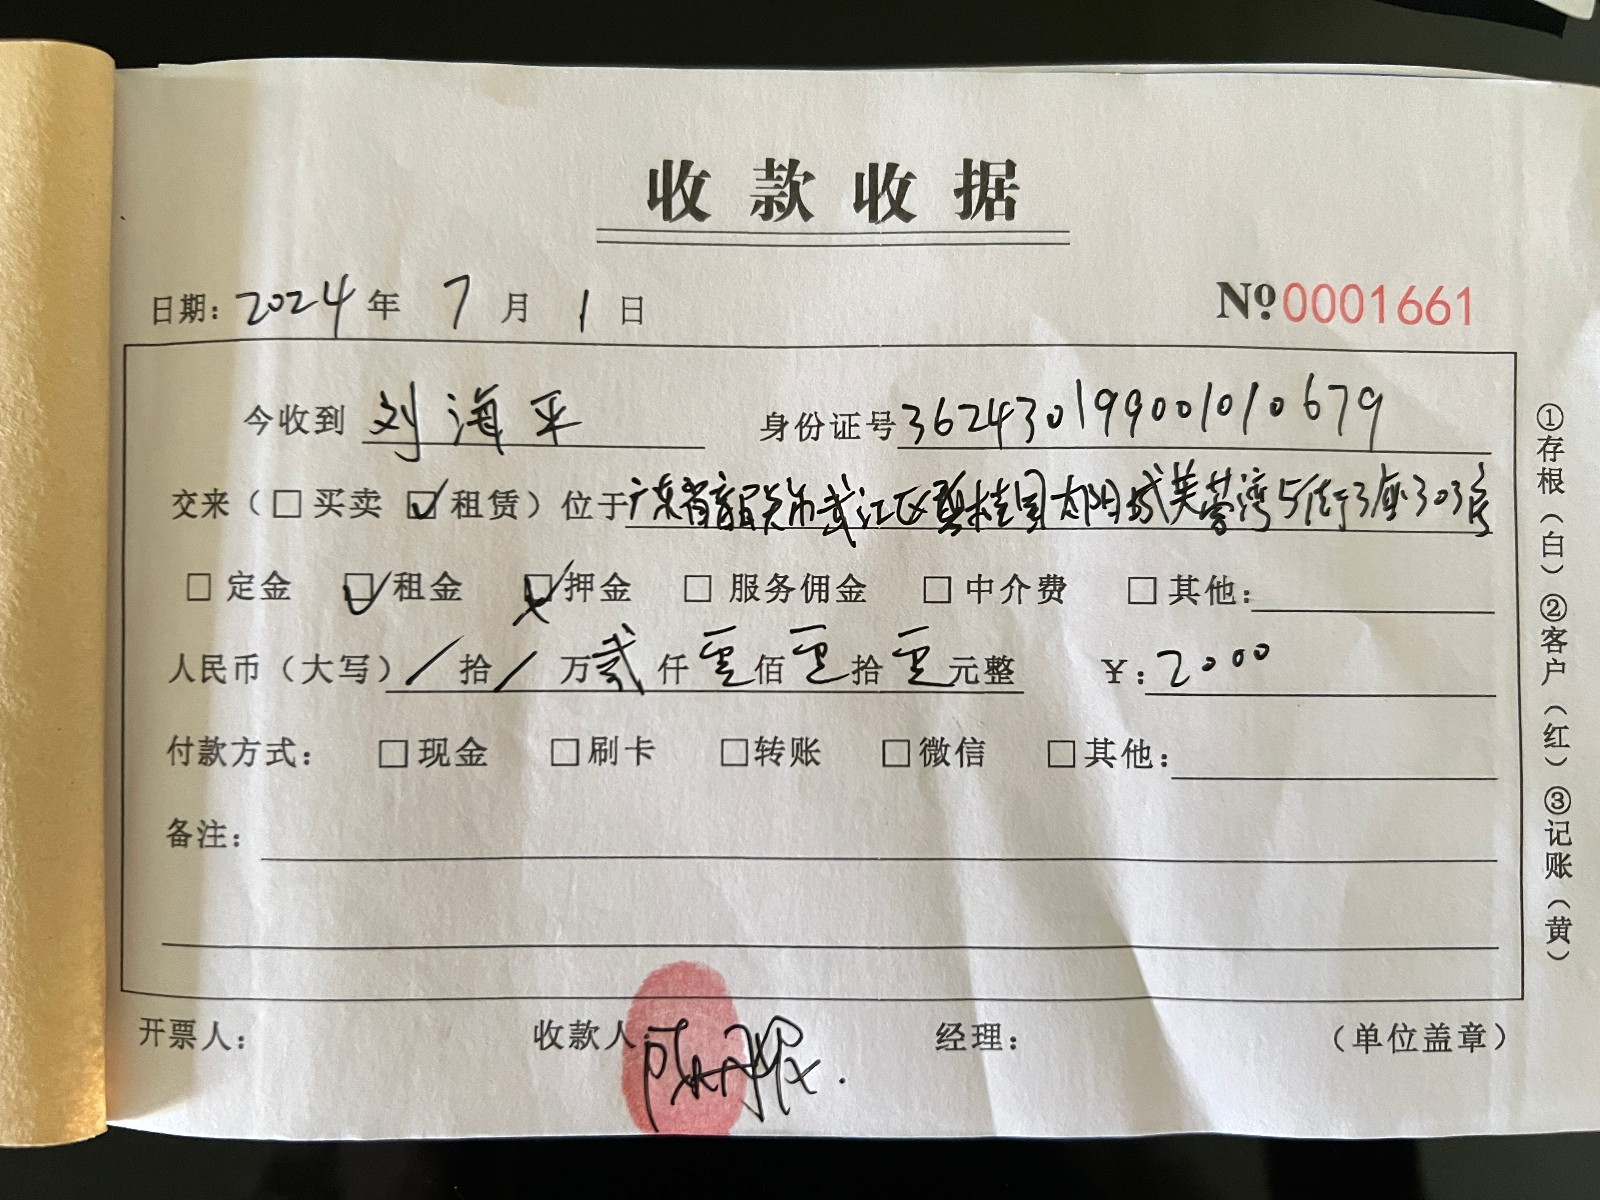 收款收据
日期：2024年 7月 1日 Nº 0001661
今收到 刘海平 身份证号 362430199001010679
交来（□买卖 ☑租赁）位于广东省韶关市武江区碧桂园太阳城芙蓉湾5街3座303房
□定金 ☑租金 ☑押金 □服务佣金 □中介费 □其他：
人民币（大写）/拾/万贰仟零佰零拾零元整 ￥：2000
付款方式：□现金 □刷卡 □转账 □微信 □其他：
备注：
开票人： 收款人： 经理： （单位盖章）
①存根（白）②客户（红）③记账（黄）